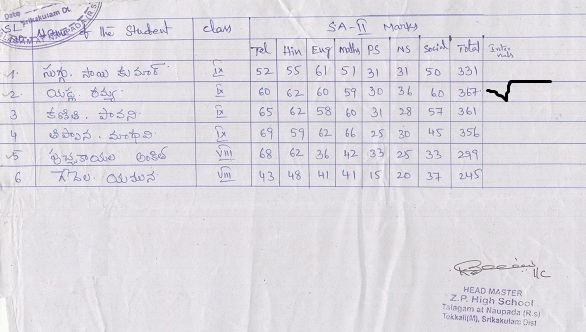 Date
Srikakulam Dt
SL
of the Student class SA-II Marks
Tel Hin Eng maths PS NS Social Total Inter nals
1. సాయి కుమార్ IX 52 55 61 51 31 31 50 331
2. రమ్య IX 60 62 60 59 30 36 60 367
3 పావని IX 65 62 58 60 31 28 57 361
4 మాధవి IX 69 59 62 66 25 30 45 356
5 VIII 68 62 36 42 33 25 33 299
6 యమున VIII 43 48 41 41 15 20 37 245
I/C
HEAD MASTER
Z.P. High School
Talagam at Naupada (R.s)
Tekkali(M), Srikakulam Dist